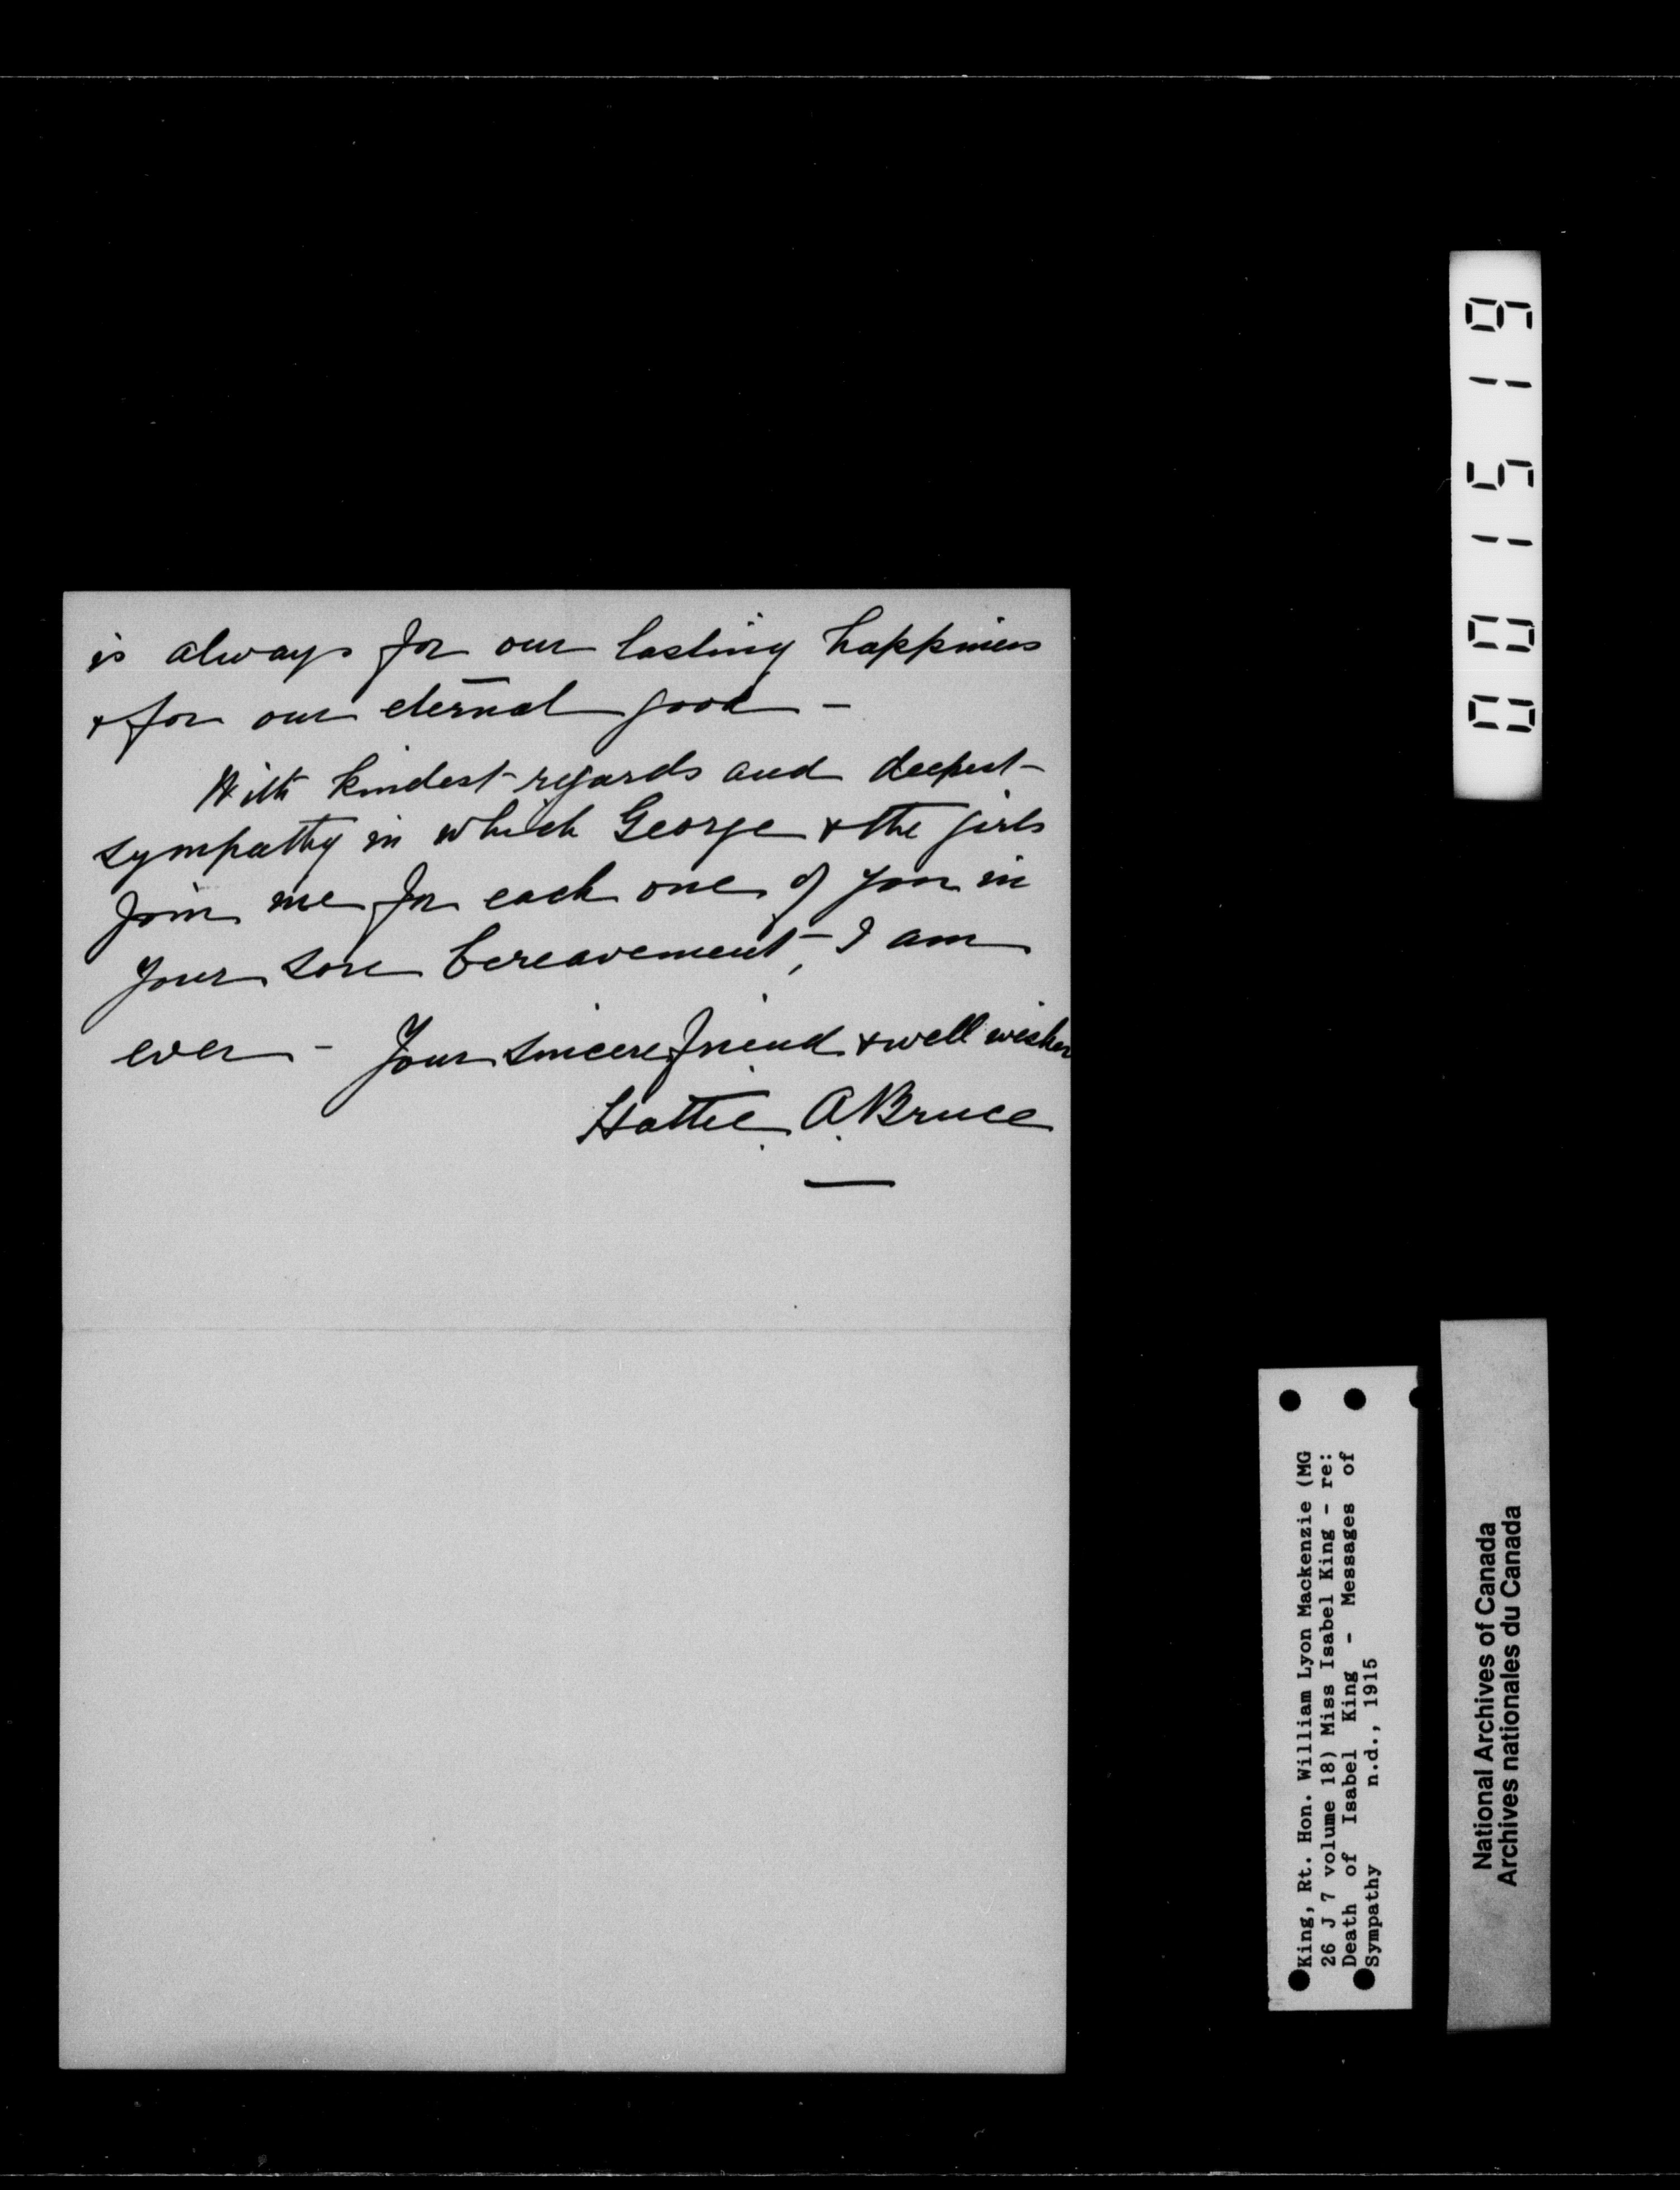 is always for our lasting happiness
& for our eternal good -
With kindest regards and deepest
sympathy in which George & the girls
join me for each one of you in
your sore bereavement, I am
ever - Your sincere friend & well wisher
Hattie A. Bruce
001519
King, Rt. Hon. William Lyon Mackenzie (MG
26 J 7 volume 18) Miss Isabel King - re:
Death of Isabel King - Messages of
Sympathy n.d., 1915
National Archives of Canada
Archives nationales du Canada